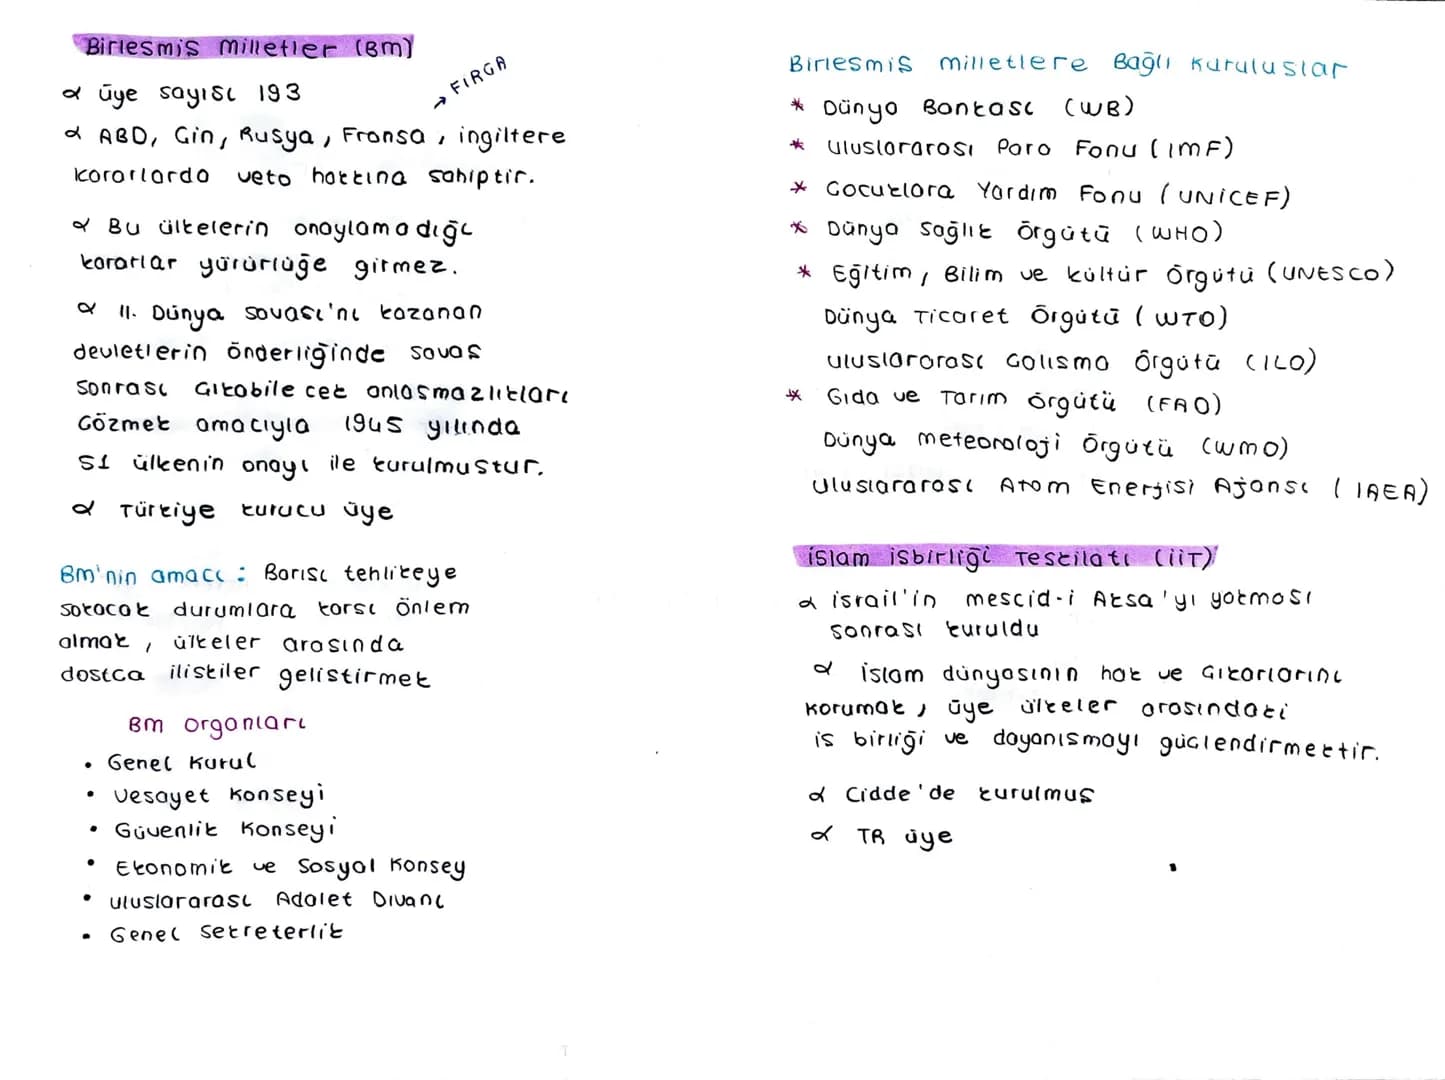 Birlesmis Milletler (BM)
üye sayısı 193
→ FIRGA
ABD, Gin, Rusya, Fransa, ingiltere
kararlarda veto hakkına sahiptir.
Bu ülkelerin onaylamadığı
kararlar yürürlüğe girmez.
II. Dünya savası'nı kazanan
devletlerin önderliğinde savas
sonrası Gıkabilecek anlasmazlıkları
Gözmek amacıyla 1945 yılında
51 ülkenin onayı ile kurulmustur.
Türkiye kurucu üye
BM'nin amacı: Barısı tehlikeye
sokacak durumlara karsı önlem
almak, ülkeler arasında
dostca iliskiler gelistirmek
BM organları
• Genel Kurul
• Vesayet Konseyi
• Güvenlik Konseyi
• Ekonomik ve Sosyal Konsey
• uluslararası Adalet Divanı
• Genel Sekreterlik
Birlesmis milletlere Bağlı Kuruluslar
* Dünya Bankası (WB)
* uluslararası Para Fonu (IMF)
* Gocuklara Yardım Fonu (UNİCEF)
* Dünya Sağlık Örgütü (WHO)
* Eğitim, Bilim ve kültür Örgütü (UNESCO)
Dünya Ticaret Örgütü (WTO)
uluslararası Galısma Örgütü (ILO)
* Gıda ve Tarım örgütü (FAO)
Dünya meteoroloji Örgütü (WMO)
Uluslararası Atom Enerjisi Ajansı (IAEA)
islam isbirliği Teskilatı (iiT)
israil'in mescid-i Aksa'yı yakması
sonrası kuruldu
islam dünyasının hak ve Gıkarlarını
korumak, üye ülkeler arasındaki
is birliği ve dayanısmayı güclendirmektir.
Cidde'de kurulmuş
TR üye